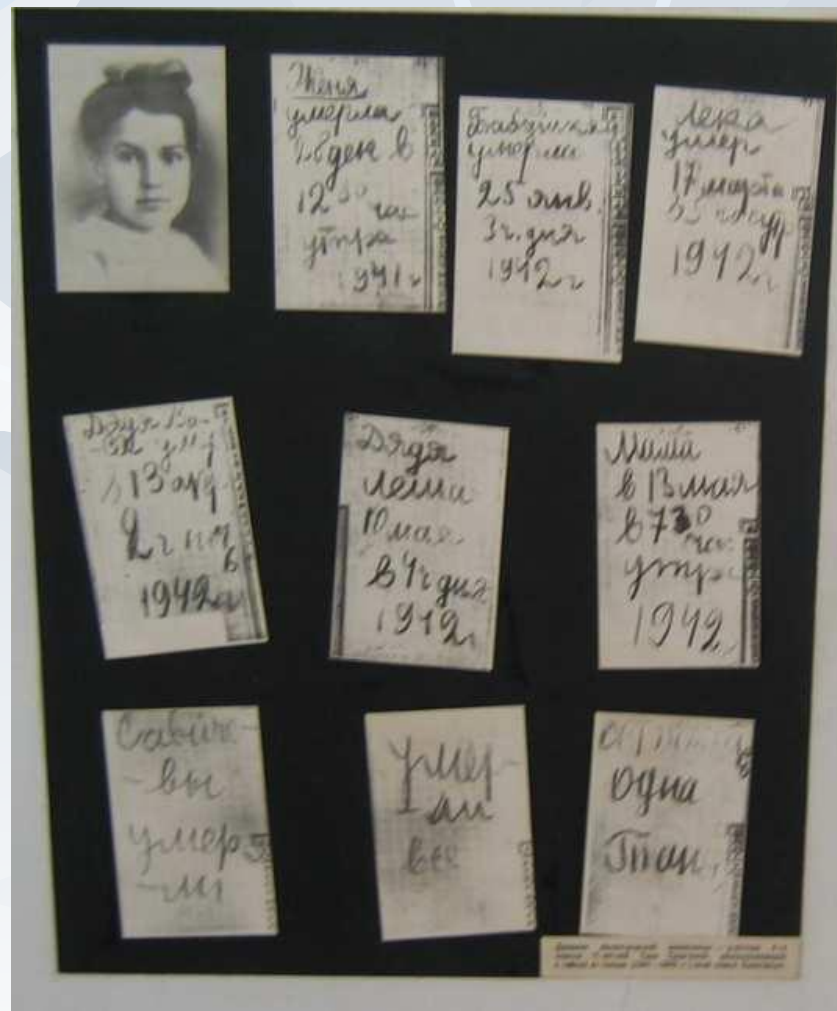 Женя
умерла
28 дек в
12 00 час
утра
1941 г
Бабушка
умерла
25 янв.
3 ч. дня
1942 г
Лека
умер
17 марта
1942 г
Дядя Ва-
-ся
13 апр
2 ч
1942 г
Дядя
Леша
10 мая
в 4 ч дня
1942 г
Мама
в 13 мая
в 7 30
час
утра
1942
Савиче-
-вы
умер
-ли
умер-
-ли
все
одна
Таня